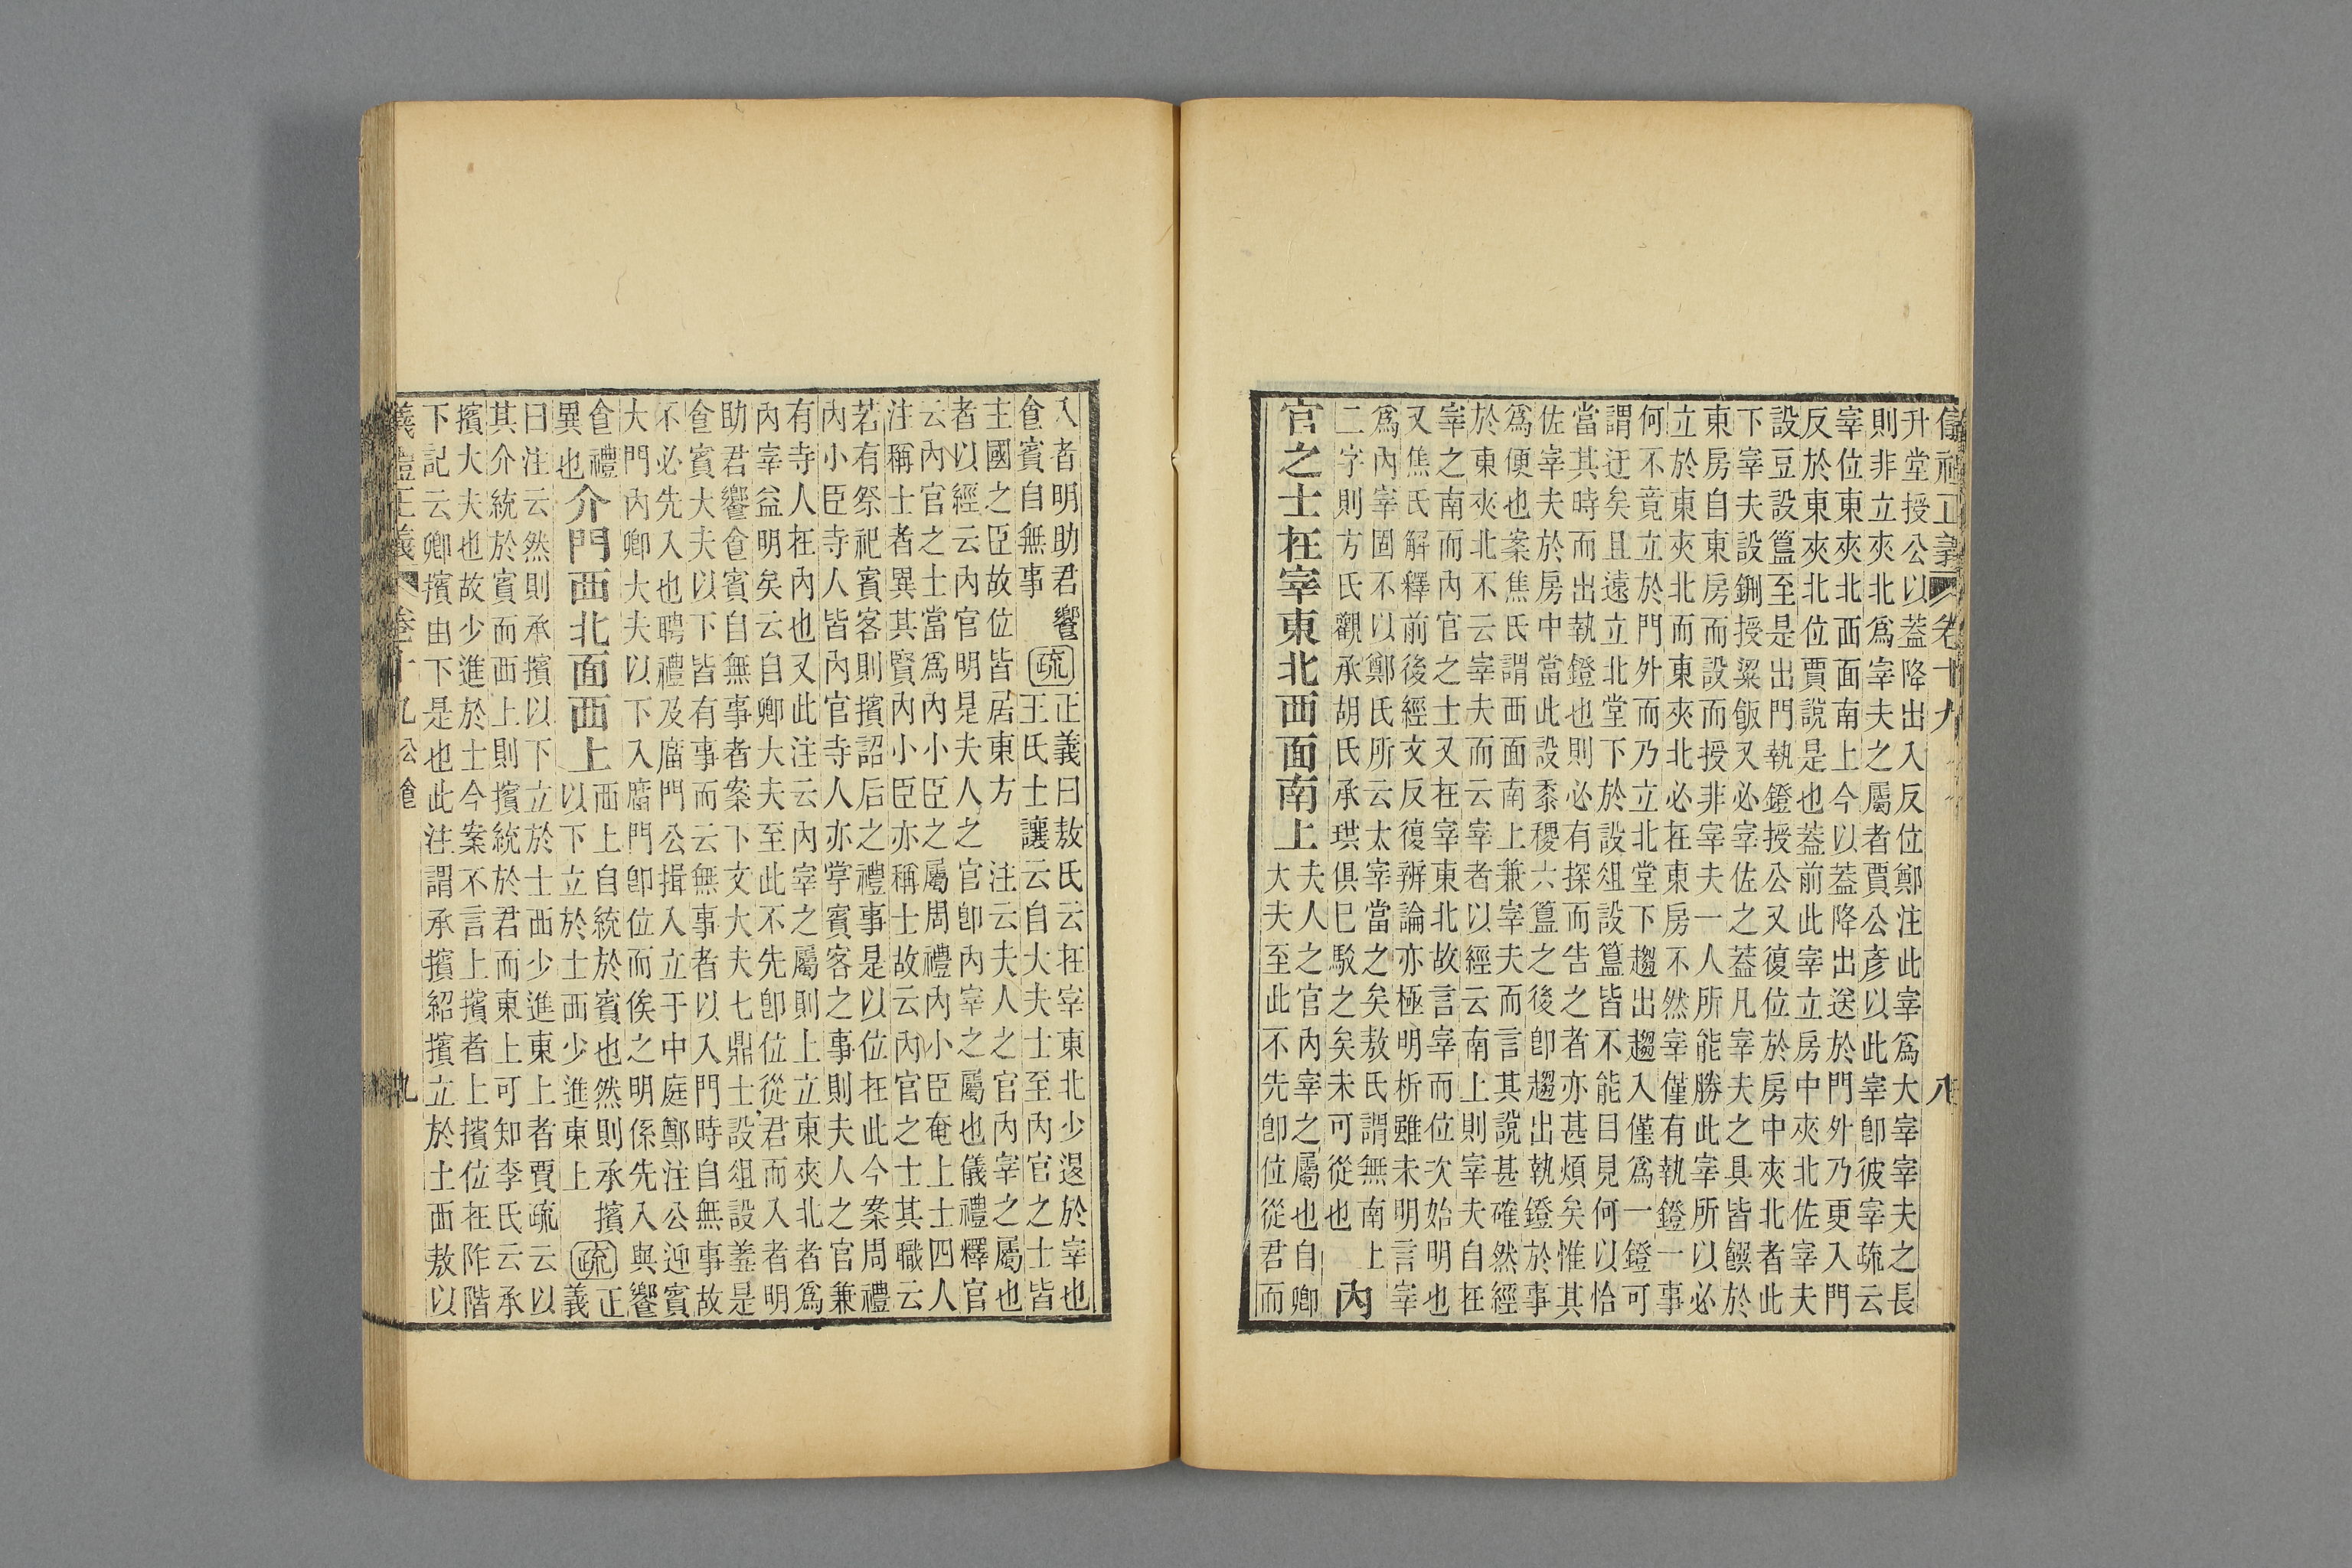 儀禮正義 卷十九 八
升堂授公以蓋降出入反位鄭注此宰爲大宰宰夫之長
則非立夾北爲宰夫之屬者賈公彥以此宰卽彼宰疏云
宰位東夾北西面南上今以蓋降出送於門外乃更入門
反於東夾北位賈說是也蓋前此宰立房中夾北佐宰夫
設豆設簋至是出門執鐙授公又復位於房中夾北者此
下宰夫設鉶授粱飯又必宰佐之蓋凡宰夫之具皆饌於
東房自東房而設而授非宰夫一人所能勝此宰所以必
立於東夾北而東夾北必在東房不然宰僅有執鐙一事
何不竟立於門外而乃立北堂下趨出趨入僅爲一鐙可
謂迂矣且遠立北堂下於設俎設簋皆不能目見何以恰
當其時而出執鐙也則必有探而告之者亦甚煩矣惟其
佐宰夫於房中當此設黍稷六簋之後卽趨出執鐙於事
爲便也案焦氏謂西面南上兼宰夫而言其說甚確然經
於東夾北不云宰夫而云宰者以經云南上則宰夫自在
宰之南而內官之士又在宰東北故言宰而位次始明也
又焦氏解釋前後經文反復辨論亦極明析雖未明言宰
爲內宰固不以鄭氏所云太宰當之矣敖氏謂無南上
二字則方氏觀承胡氏承珙俱已駁之矣未可從也
內
官之士在宰東北西面南上
夫人之官內宰之屬也自卿
大夫至此不先卽位從君而
入者明助君饗
食賓自無事
疏
正義曰敖氏云在宰東北少退於宰也
王氏士讓云自大夫士至內官之士皆
主國之臣故位皆居東方 注云夫人之官內宰之屬也
者以經云內官明是夫人之官卽內宰之屬也儀禮釋官
云內官之士當爲內小臣之屬周禮內小臣奄上士四人
注稱士者異其賢內小臣亦稱士故云內官之士其職云
若有祭祀賓客則擯詔后之禮事是以位在此今案周禮
內小臣寺人皆內官寺人亦掌賓客之事則夫人之官兼
有寺人在內也又此注云內宰之屬則上立東夾北者爲
內宰益明矣云自卿大夫至此不先卽位從君而入者明
助君饗食賓自無事者案下文大夫七鼎士設俎設蓋是
食賓大夫以下皆有事而云無事者以入門時自無事故
不必先入也聘禮及廟門公揖入立于中庭鄭注公迎賓
大門內卿大夫以下入廟門卽位而俟之明係先入與饗
食禮
異也
介門西北面西上
西上自統於賓也然則承擯
以下立於士西少進東上
疏
正
義
曰注云然則承擯以下立於士西少進東上者賈疏云以
其介統於賓而西上則擯統於君而東上可知李氏云承
擯大夫也故少進於士今案不言上擯者上擯位在阼階
下記云卿擯由下是也此注謂承擯紹擯立於士西敖以
儀禮正義 卷十九 公食 九